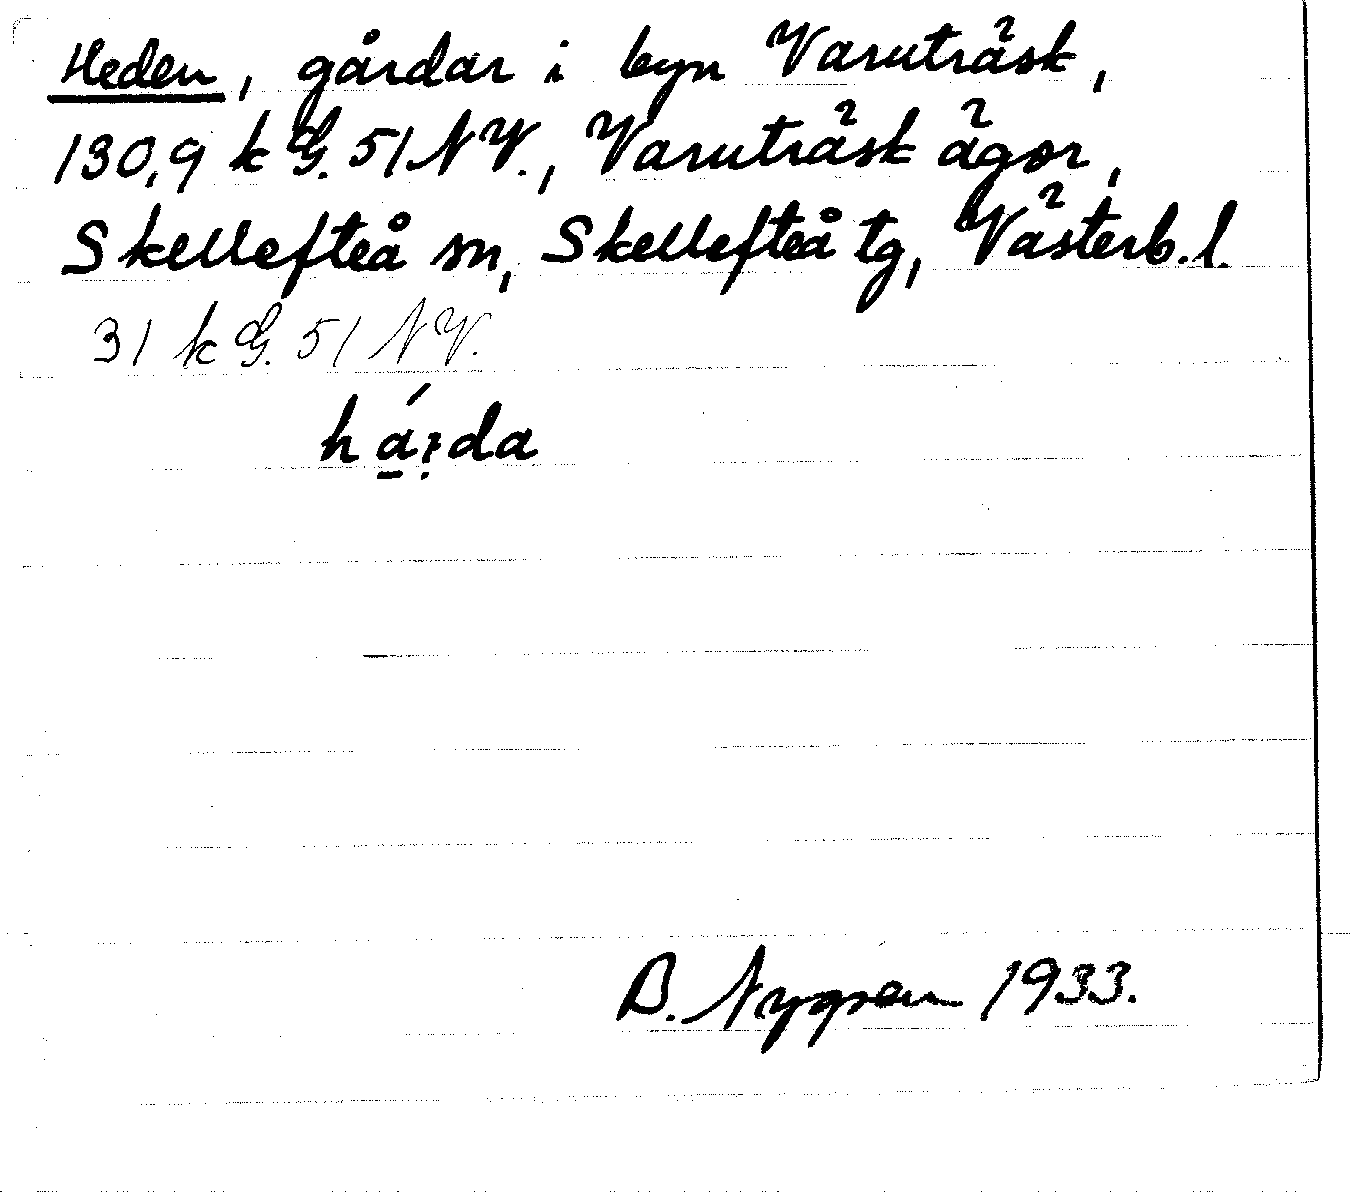 Heden, gårdar i byn Varuträsk,
130,9 k G. 51 NV., Varuträsk ägor,
Skellefteå sn, Skellefteå tg, Västerb. l.
31 k G. 51 NV.
B. Nygren 1933.